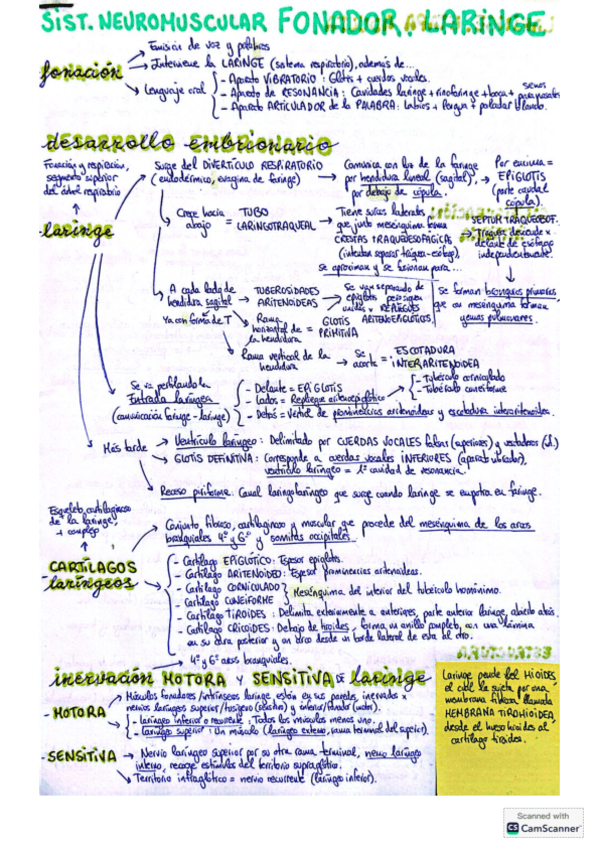 SIST. NEUROMUSCULAR FONADOR. LARINGE
fonación
→ Emisión de voz y palabras
→ Interviene la LARINGE (sistema respiratorio), además de...
→ Lenguaje oral
- Aparato VIBRATORIO: Glotis + cuerdas vocales.
- Aparato de RESONANCIA: Cavidades laringe + rinofaringe + boca + senos paranasales
- Aparato ARTICULADOR de la PALABRA: Labios + lengua + paladar blando.
desarrollo embrionario
Fonación y respiración,
segmento superior
del árbol respiratorio
laringe
Surge del DIVERTÍCULO RESPIRATORIO
(endodérmico, evagina de faringe)
Comunica con luz de la faringe
por hendidura lineal (sagital),
por debajo de cópula.
Por encima =
EPIGLOTIS
(parte caudal
cópula).
Crece hacia
abajo
= TUBO
LARINGOTRAQUEAL
Tiene surcos laterales
que junto mesénquima forma
CRESTAS TRAQUEOESOFÁGICA
(intentan separar tráquea-esófago),
se aproximan y se fusionan para...
SEPTUM TRAQUEOESOF.
Tráquea desciende x
delante de esófago
independientemente.
Se forman bronquios primarios,
que con mesénquima forman
yemas pulmonares.
A cada lado de
hendidura sagital
Ya con forma de T
TUBEROSIDADES
ARITENOIDEAS
Se van separando de
epiglotis pero siguen
unidas x REPLIEGUES
ARITENOEPIGLÓTICOS
Rama
horizontal de
la hendidura
= GLOTIS
PRIMITIVA
Rama vertical de la
hendidura
Se
acorta
= ESCOTADURA
INTERARITENOIDEA
Se va perfilando la
Entrada laríngea
(comunicación faringe-laringe)
- Delante = EPIGLOTIS
- Lados = Repliegue aritenoepiglótico
- Tubérculo corniculado
- Tubérculo cuneiforme
- Detrás = Vértice de prominencias aritenoideas y escotadura interaritenoidea.
Más tarde
→ Ventrículo laríngeo: Delimitado por CUERDAS VOCALES falsas (superiores) y verdaderas (id.)
→ GLOTIS DEFINITIVA: Corresponde a cuerdas vocales INFERIORES (aparato vibrador),
ventrículo laríngeo = 1ª cavidad de resonancia.
→ Receso piriforme: Canal laringofaríngeo que surge cuando laringe se empotra en faringe.
Esqueleto cartilaginoso
de la laringe,
+ complejo
CARTÍLAGOS
laríngeos
→ Conjunto fibroso, cartilaginoso y muscular que procede del mesénquima de los arcos
branquiales 4º y 6º y somitas occipitales.
- Cartílago EPIGLÓTICO: Espesor epiglotis.
- Cartílago ARITENOIDEO: Espesor prominencias aritenoideas.
- Cartílago CORNICULADO
- Cartílago CUNEIFORME
Mesénquima del interior del tubérculo homónimo.
- Cartílago TIROIDES: Delimita exteriormente a anteriores, parte anterior laringe, abierto atrás.
- Cartílago CRICOIDES: Debajo de tiroides, forma un anillo completo, con una lámina
en su cara posterior y un arco desde un borde lateral de esta al otro.
→ 4º y 6º arcos branquiales.
inervación MOTORA Y SENSITIVA DE laringe
- MOTORA
→ Músculos fonadores/intrínsecos laringe, están en sus paredes, inervados x
nervios laríngeos superior/fonígero (elástico) y inferior/fonador (motor).
- laríngeo inferior o recurrente: Todos los músculos menos uno.
- laríngeo superior: Un músculo (laríngeo externo, rama terminal del superior).
- SENSITIVA
→ Nervio laríngeo superior por su otra rama terminal, nervio laríngeo
interno, recoge estímulos del territorio supraglótico.
→ Territorio infraglótico = nervio recurrente (laríngeo inferior).
Laringe pende del HIOIDES
el cual la sujeta por una
membrana fibrosa llamada
MEMBRANA TIROHIOIDEA,
desde el hueso hioides al
cartílago tiroides.
Scanned with
CS CamScanner